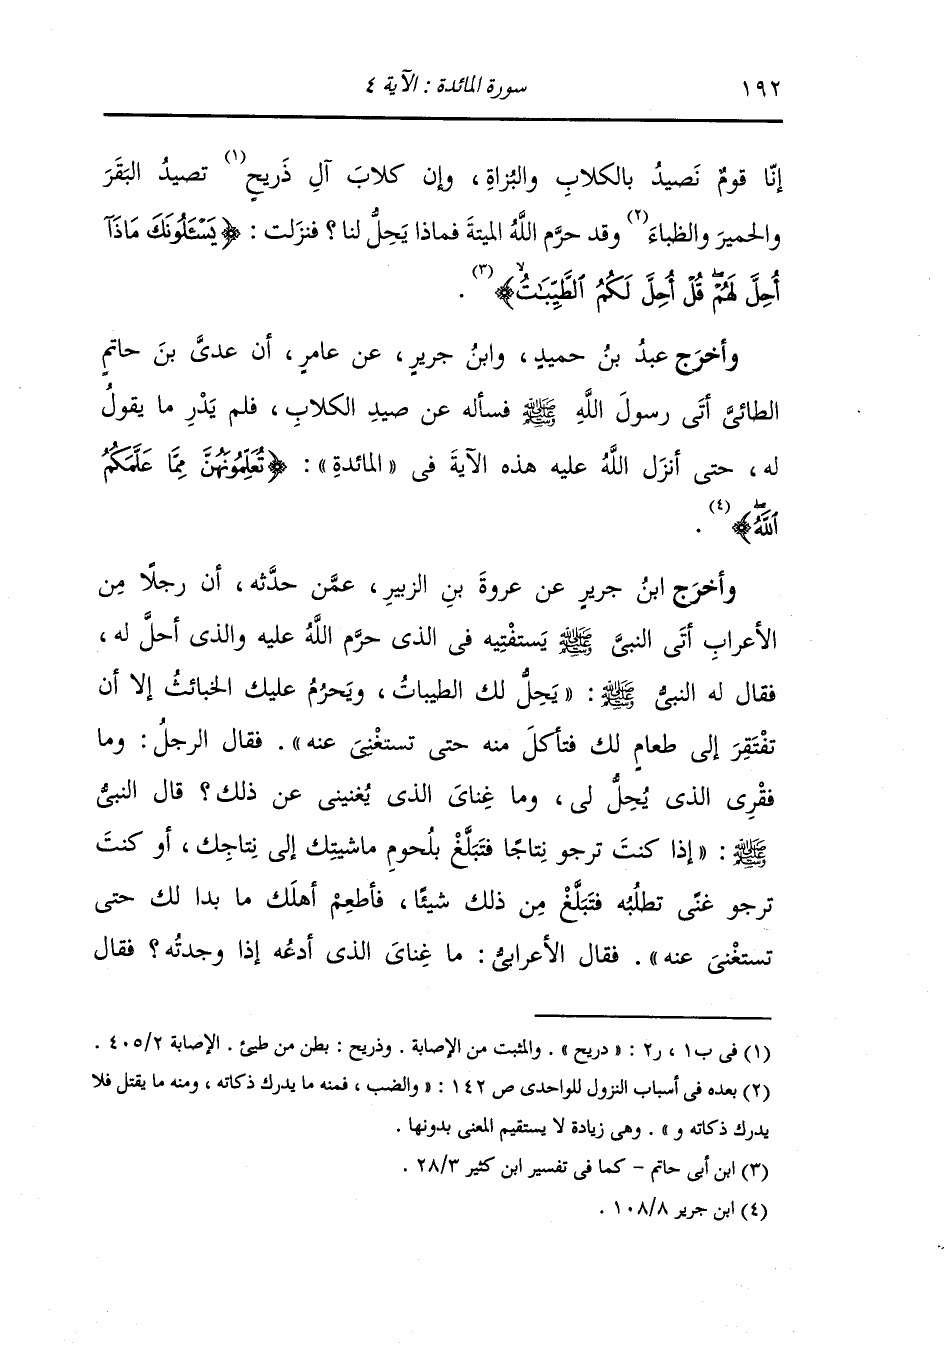 ١٩٢ سورة المائدة : الآية ٤
إنّا قومٌ نَصيدُ بالكلابِ والبُزاةِ ، وإن كلابَ آلِ ذَريحٍ(١) تصيدُ البَقَرَ
والحميرَ والظباءَ(٢) وقد حرَّم اللَّهُ الميتةَ فماذا يَحِلُّ لنا ؟ فنزَلت : ﴿يَسْـَٔلُونَكَ مَاذَآ
أُحِلَّ لَهُمْۖ قُلْ أُحِلَّ لَكُمُ ٱلطَّيِّبَـٰتُۙ﴾(٣) .
وأخرَج عبدُ بنُ حميدٍ ، وابنُ جريرٍ ، عن عامرٍ ، أن عدىَّ بنَ حاتمٍ
الطائىَّ أتَى رسولَ اللَّهِ ﷺ فسأله عن صيدِ الكلابِ ، فلم يَدْرِ ما يقولُ
له ، حتى أنزَل اللَّهُ عليه هذه الآيةَ فى «المائدةِ» : ﴿تُعَلِّمُونَهُنَّ مِمَّا عَلَّمَكُمُ
ٱللَّهُۖ﴾(٤) .
وأخرَج ابنُ جريرٍ عن عروةَ بنِ الزبيرِ ، عمَّن حدَّثه ، أن رجلًا مِن
الأعرابِ أتَى النبىَّ ﷺ يَستفْتِيه فى الذى حرَّم اللَّهُ عليه والذى أحلَّ له ،
فقال له النبىُّ ﷺ : « يَحِلُّ لك الطيباتُ ، ويَحرُمُ عليك الخبائثُ إلا أن
تفْتَقِرَ إلى طعامٍ لك فتأكلَ منه حتى تستغْنِىَ عنه» . فقال الرجلُ : وما
فقْرِى الذى يُحِلُّ لى ، وما غِناىَ الذى يُغنينى عن ذلك ؟ قال النبىُّ
ﷺ : «إذا كنتَ ترجو نِتاجًا فتَبَلَّغْ بلُحومِ ماشيتِك إلى نِتاجِك ، أو كنتَ
ترجو غنًى تطلُبُه فتَبَلَّغْ مِن ذلك شيئًا ، فأطعِمْ أهلَك ما بدا لك حتى
تستغْنِىَ عنه» . فقال الأعرابىُّ : ما غِناىَ الذى أدعُه إذا وجدتُه ؟ فقال
(١) فى ب١ ، ر٢ : « دريح » . والمثبت من الإصابة . وذريح : بطن من طيئ . الإصابة ٤٠٥/٢ .
(٢) بعده فى أسباب النزول للواحدى ص ١٤٢ : « والضب ، فمنه ما يدرك ذكاته ، ومنه ما يقتل فلا
يدرك ذكاته و » . وهى زيادة لا يستقيم المعنى بدونها .
(٣) ابن أبى حاتم - كما فى تفسير ابن كثير ٢٨/٣ .
(٤) ابن جرير ١٠٨/٨ .